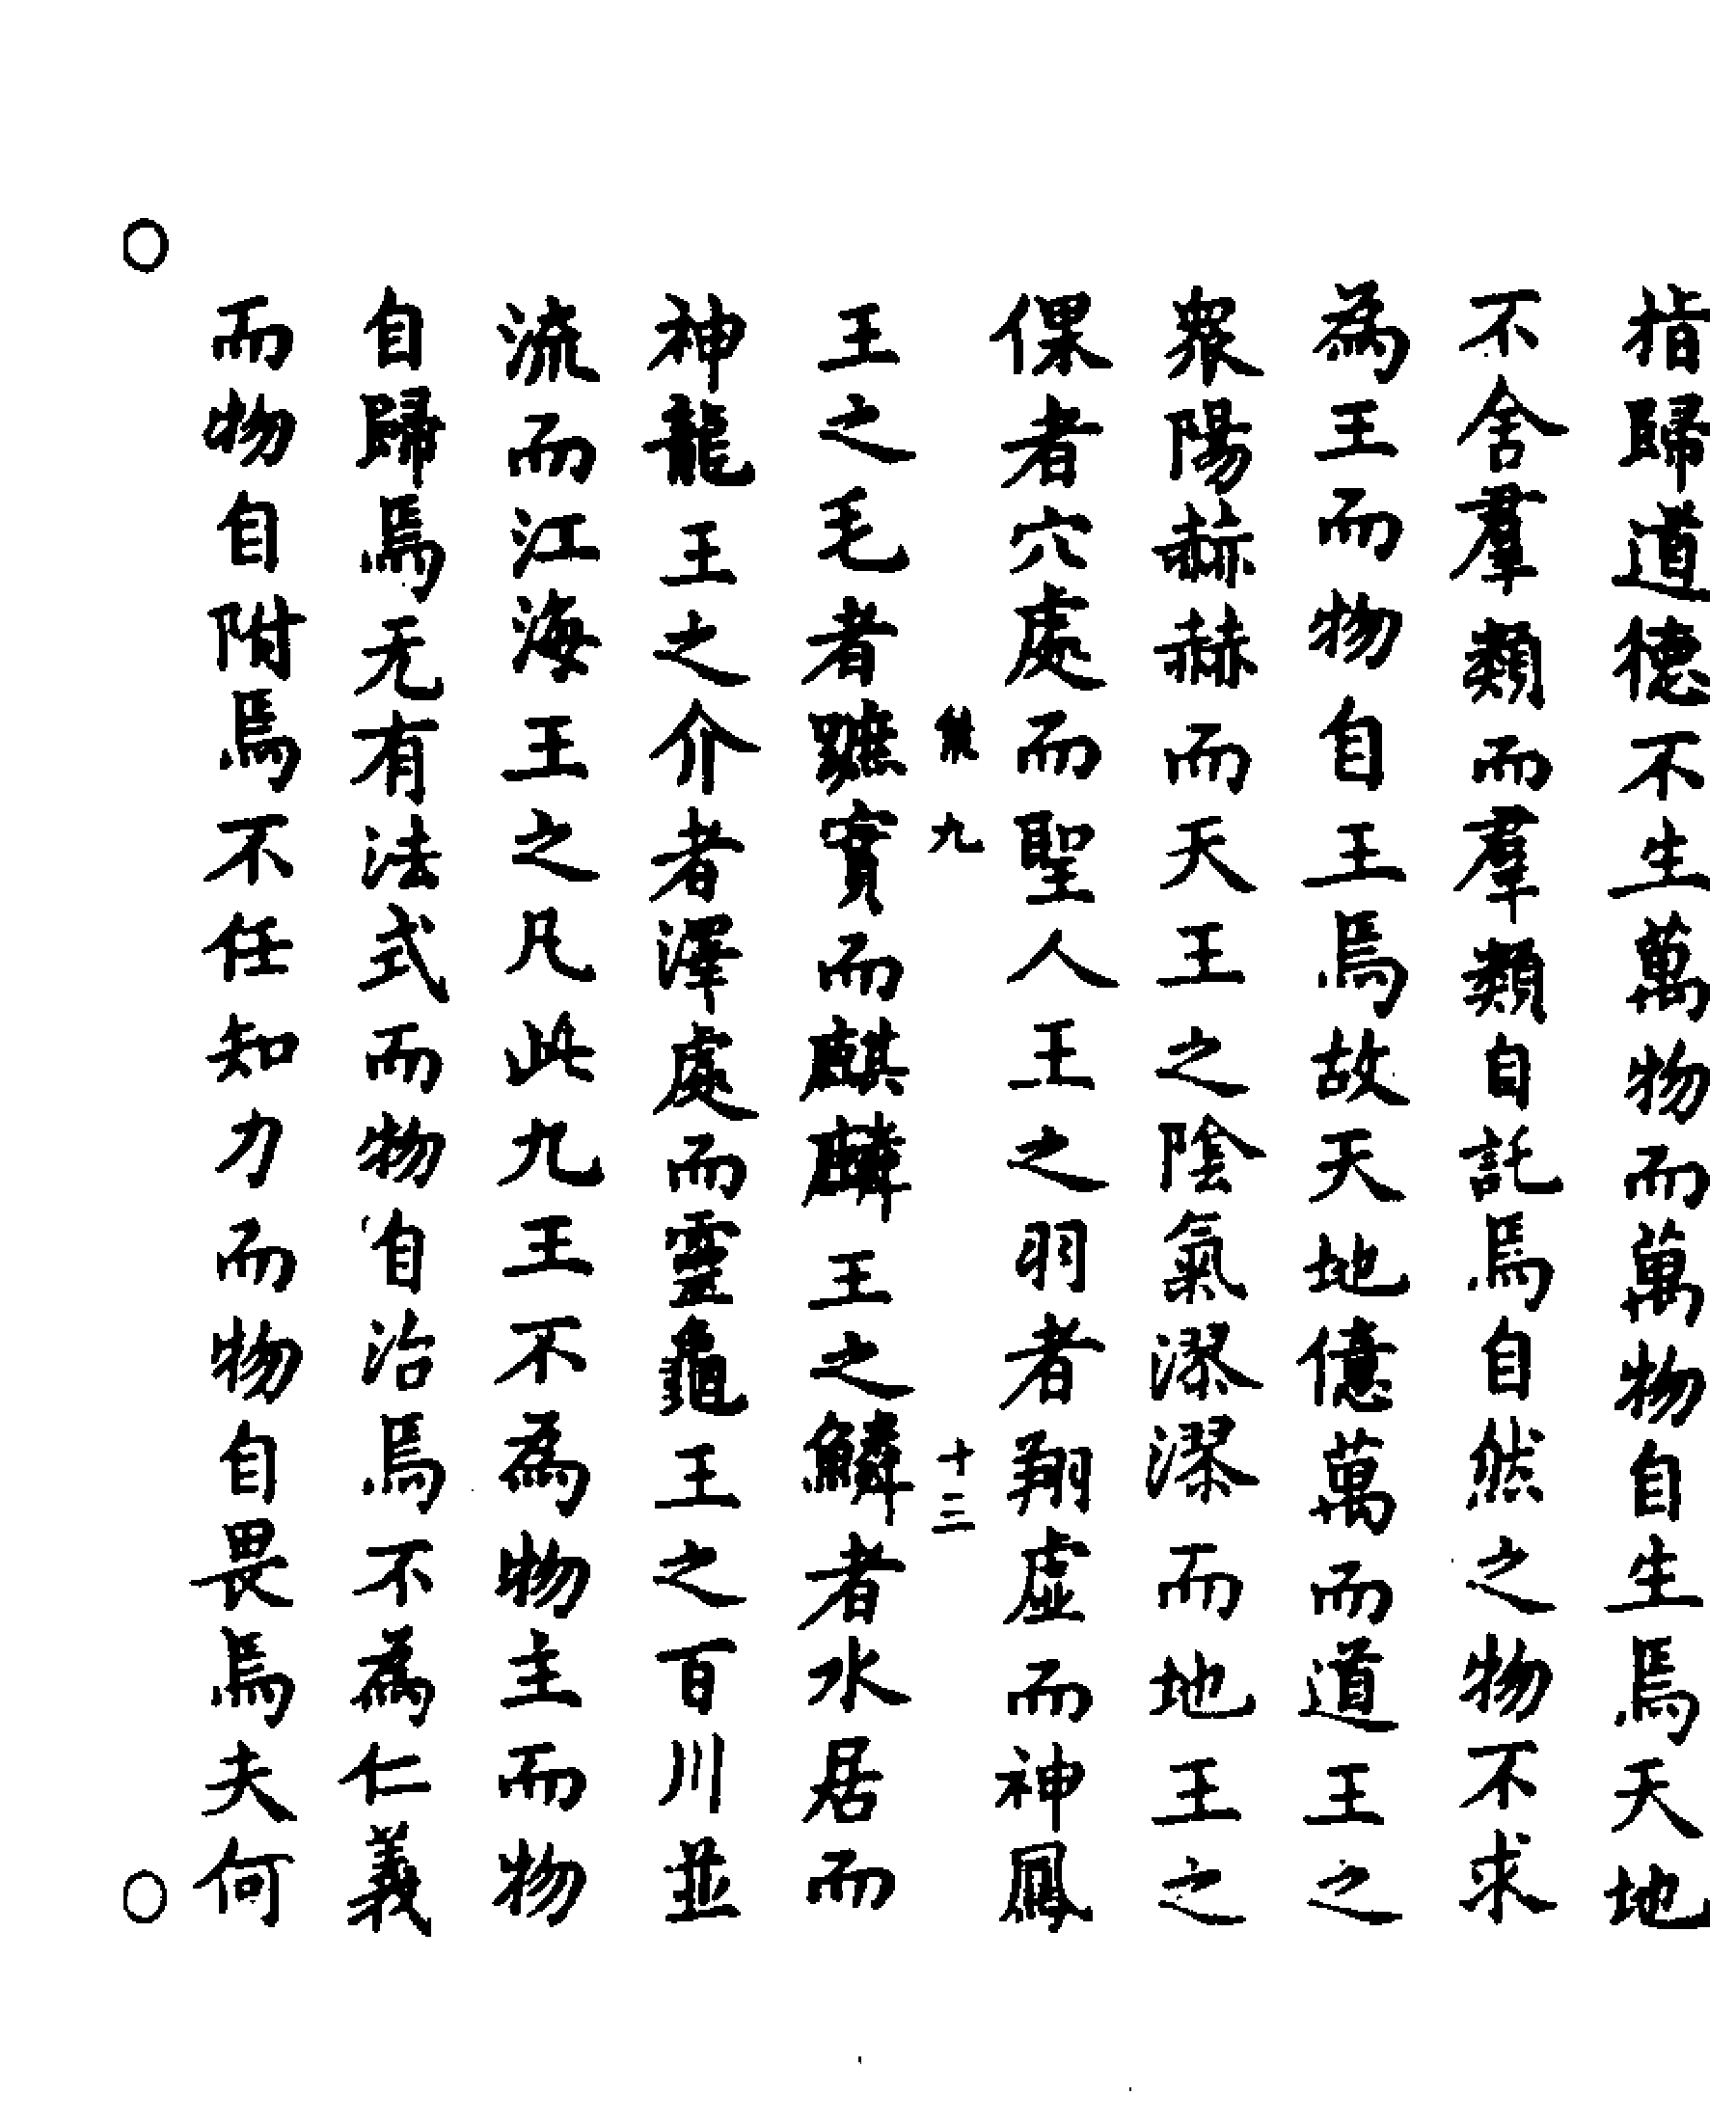 指歸道德不生萬物而萬物自生焉天地
不舍羣類而羣類自託焉自然之物不求
為王而物自王焉故天地億萬而道王之
衆陽赫赫而天王之陰氣漻漻而地王之
倮者穴處而聖人王之羽者翔虛而神鳳
能九 十三
王之毛者蹠實而麒麟王之鱗者水居而
神龍王之介者澤處而靈龜王之百川並
流而江海王之凡此九王不為物主而物
自歸焉无有法式而物自治焉不為仁義
而物自附焉不任知力而物自畏焉夫何